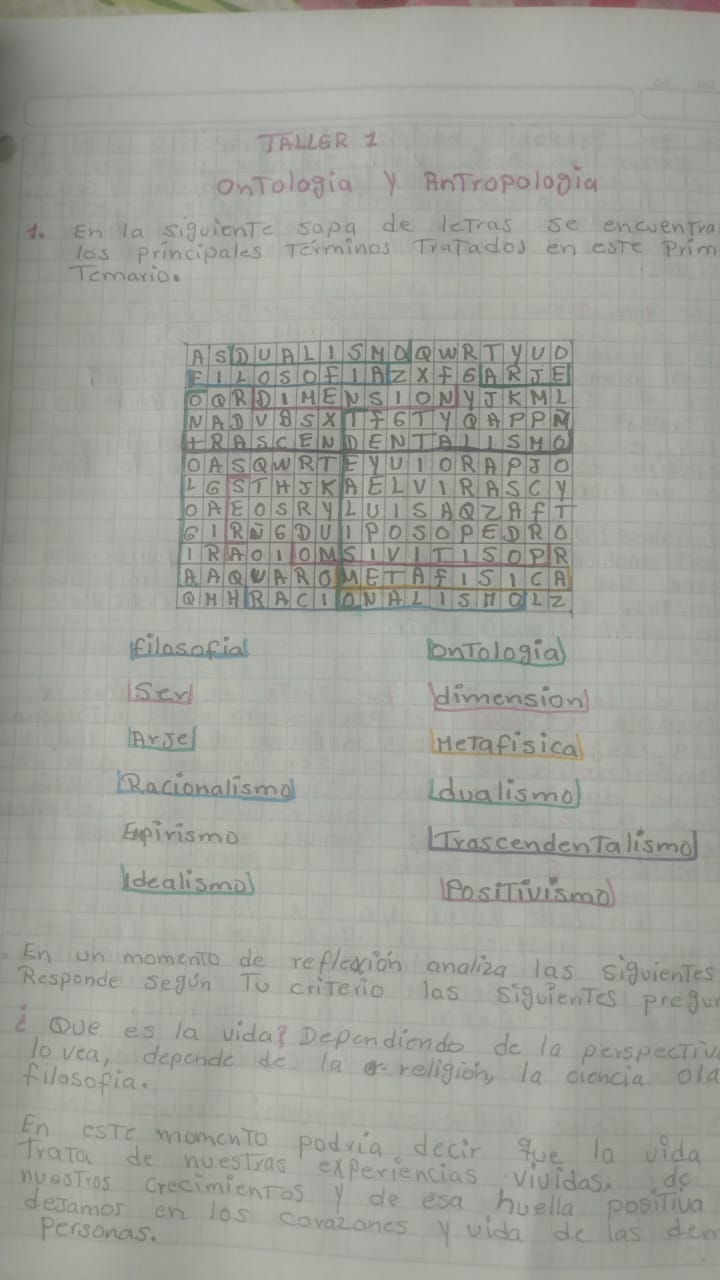 TALLER 1
Ontologia y Antropologia
1. En la siguiente sopa de letras se encuentra
los principales Términos Tratados en este Prim
Temario.
A S D U A L I S M O Q W R T Y U O
F I L O S O F I A Z X F G A R J E
O Q R D I M E N S I O N Y J K M L
N A D V B S X T F G T Y Q A P P Ñ
T R A S C E N D E N T A L I S M O
O A S Q W R T E Y U I O R A P J O
L G S T H J K A E L V I R A S C Y
O A E O S R Y L U I S A Q Z A F T
G I R Ñ G D U I P O S O P E D R O
I R A O I O M S I V I T I S O P R
A A Q U A R O M E T A F I S I C A
Q M H R A C I O N A L I S M O L Z
filosofia ontologia
Ser dimension
Arje Metafisica
Racionalismo dualismo
Empirismo Trascendentalismo
Idealismo Positivismo
En un momento de reflexión analiza las siguientes
Responde según Tu criterio las siguientes pregun
¿Que es la vida? Dependiendo de la perspectiva
lo vea, depende de la religión, la ciencia o la
filosofia.
En este momento podría decir que la vida
Trata de nuestras experiencias vividas, de
nuestros crecimientos y de esa huella positiva
dejamos en los corazones y vida de las dem
Personas.